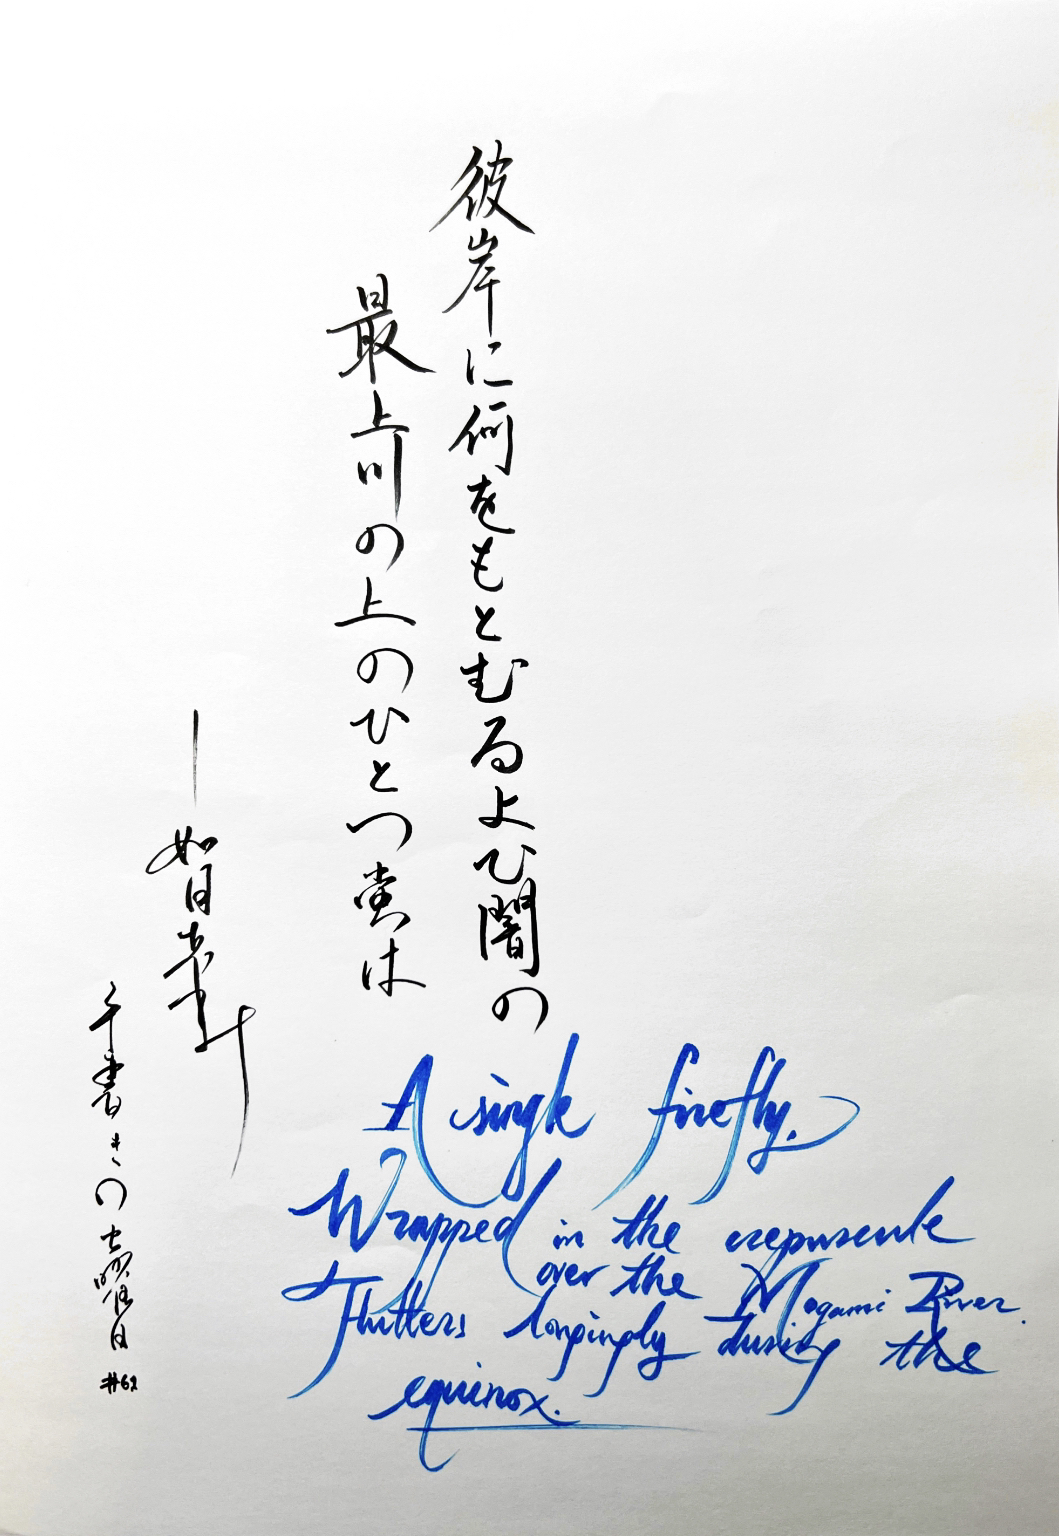 彼岸に何をもとむるよひ闇の
最上川の上のひとつ蛍は
— 如月
手書きの土曜日
#62
A single firefly,
Wrapped in the crepuscule
over the Mogami River.
Flutters longingly during the
equinox.